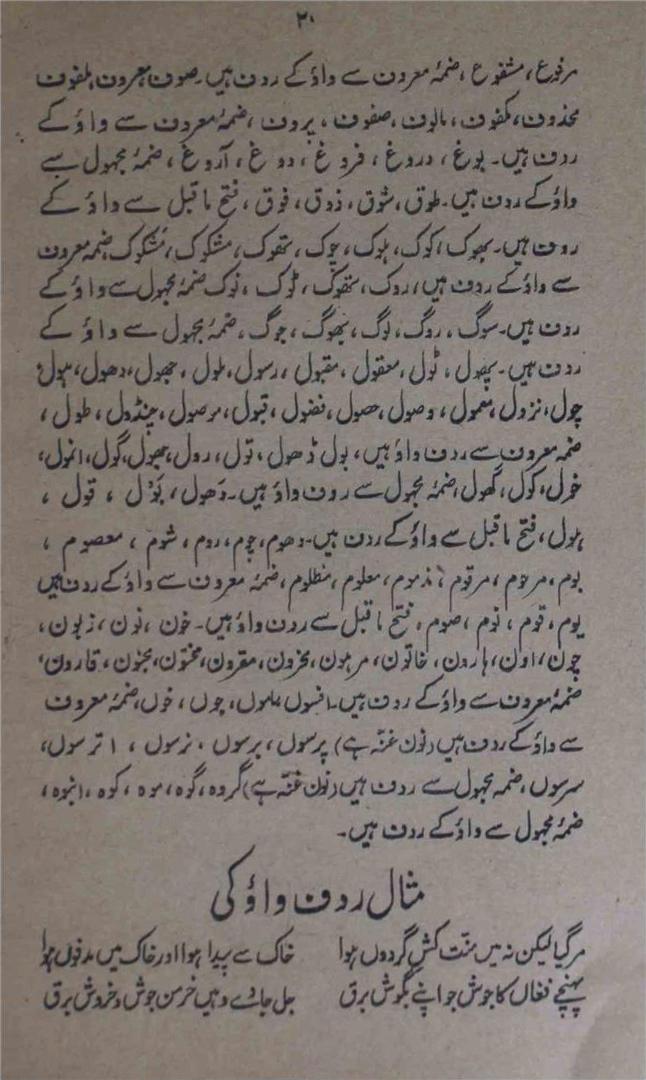 ۲۰
مرفوع، مشفوع، ضمۂ معروف سے واؤ کے ردف ہیں۔ صوف، معروف، ملفوف
محذوف، مکفوف، مالوف، صفوف، بروف، ضمۂ معروف سے واؤ کے
ردف ہیں۔ بوغ، دروغ، فروغ، دوغ، آروغ، ضمۂ مجہول سے
واؤ کے ردف ہیں۔ طوق، شوق، ذوق، فوق، فتح ماقبل سے واؤ کے
ردف ہیں۔ بھوک، کوک، ہوک، چوک، تھوک، مشکوک، مَشکوک، ضمہ معروف
سے واؤ کے ردف ہیں، روک، تھوک، ٹوک، نوک ضمۂ مجہول سے واؤ کے
ردف ہیں۔ سوگ، روگ، لوگ، بھوگ، جوگ، ضمۂ مجہول سے واؤ کے
ردف ہیں۔ پھول، ٹول، معقول، مقبول، رسول، طول، جھول، دھول، ہول
چول، نزول، معمول، وصول، حصول، فضول، قبول، مرصول، چنڈول، طول،
ضمہ معروف سے ردف واؤ ہیں، بول ڈھول، تول، رول، جھول، گول، انمول،
خول، کول، گھول، ضمۂ مجہول سے ردف واؤ ہیں۔ دھول، بَوْل، قول،
ہول، فتح ماقبل سے واؤ کے ردف ہیں۔ دھوم، چوم، روم، شوم، معصوم،
بوم، مرحوم، مرقوم، مذموم، معلوم، مظلوم، ضمۂ معروف سے واؤ کے ردف ہیں
یوم، قوم، نوم، صوم، فتح ماقبل سے ردف واؤ ہیں۔ خون، نون، زبون،
چون، اون، ہارون، خاتون، مرہون، محزون، مقرون، مختون، مجنون، قارون،
ضمۂ معروف سے واؤ کے ردف ہیں۔ افسوں، ہلموں، چوں، خوں، ضمۂ معروف
سے واؤ کے ردف ہیں (نون غنّہ ہے) پرسوں، برسوں، نرسوں، اترسوں،
سرسوں، ضمۂ مجہول سے ردف ہیں (نون غنّہ ہے) گروہ، گوہ، موہ، کوہ، انبوہ،
ضمۂ مجہول سے واؤ کے ردف ہیں۔
مثال ردف واؤ کی
مر گیا لیکن نہ میں منّت کش گردوں ہوا خاک سے پیدا ہوا اور خاک میں مدفوں ہوا
پہنچے فغاں کا جوش جو اپنے بگوش برق جل جائے وہیں خرمن جوش و خروش برق